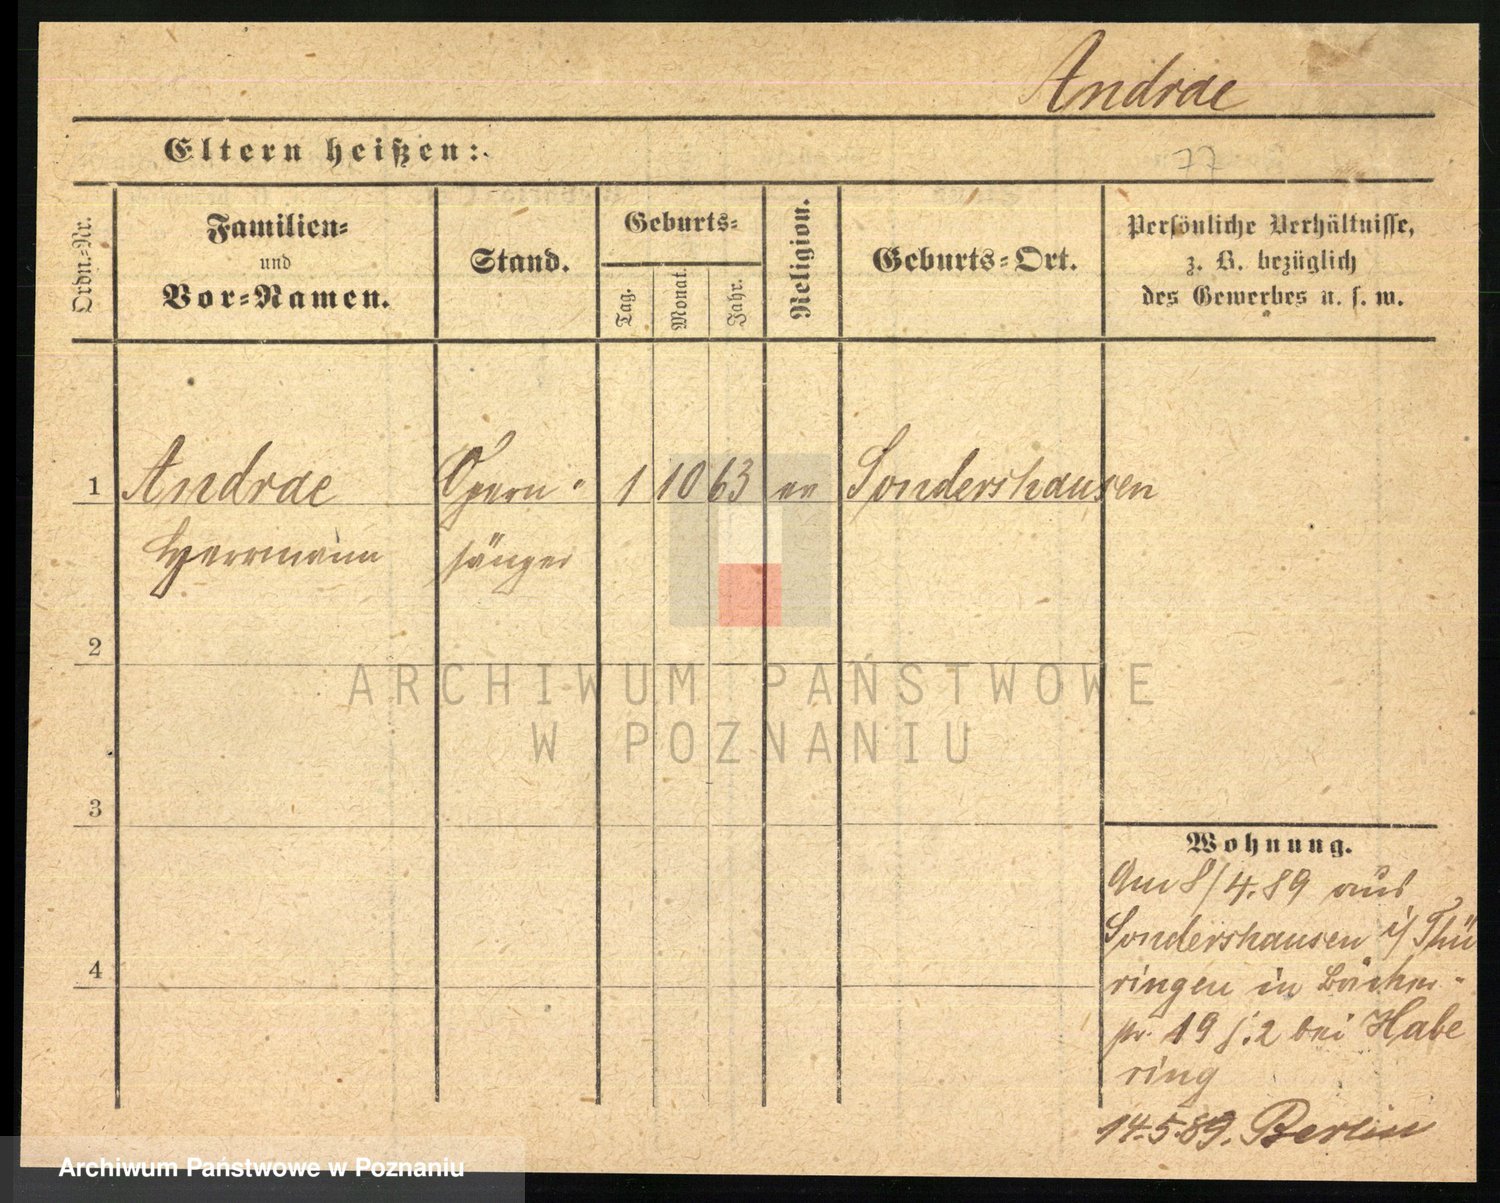 Andrae
Eltern heißen:
77
Ordn.-Nr.
Familien-
und
Vor-Namen.
Stand.
Geburts-
Tag.
Monat.
Jahr.
Religion.
Geburts-Ort.
Persönliche Verhältnisse,
z. B. bezüglich
des Gewerbes u. s. w.
1 Andrae Opern- 1 10 63 ev Sondershausen
Herrmann sänger
2
3
4
Wohnung.
Am 8/4.89 aus
Sondershausen i/Thü
ringen in Bäcker-
str. 19 bei Habe
ring
14.5.89. Berlin
ARCHIWUM PAŃSTWOWE
W POZNANIU
Archiwum Państwowe w Poznaniu